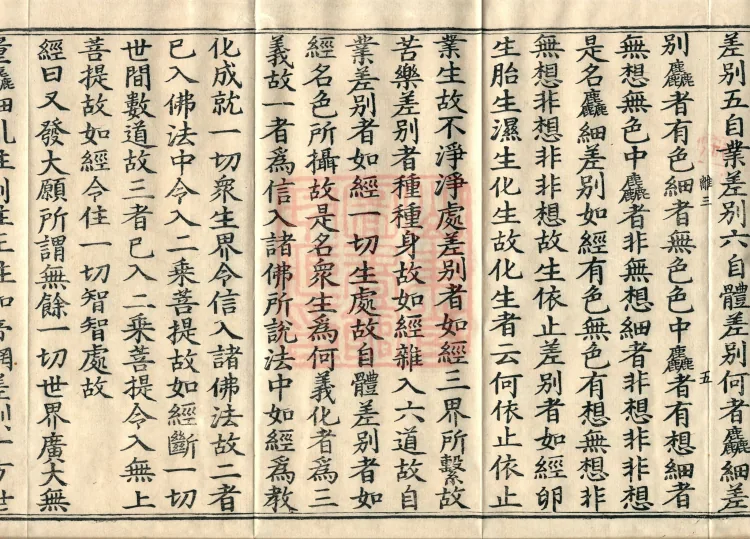 差别五自業差别六自體差别何者麤細差
别麤者有色細者無色色中麤者有想細者
離三 五
無想無色中麤者非無想細者非想非非想
是名麤細差别如經有色無色有想無想非
無想非想非非想故生依止差别者如經卵
生胎生濕生化生故化生者云何依止依止
業生故不淨淨處差别者如經三界所繫故
苦樂差别者種種身故如經雜入六道故自
業差别者如經一切生處故自體差别者如
經名色所攝故是名衆生爲何義化者爲三
義故一者爲信入諸佛所說法中如經爲教
化成就一切衆生界令信入諸佛法故二者
已入佛法中令入二乘菩提故如經斷一切
世間數道故三者已入二乘菩提令入無上
菩提故如經令住一切智智處故
經曰又發大願所謂無餘一切世界廣大無